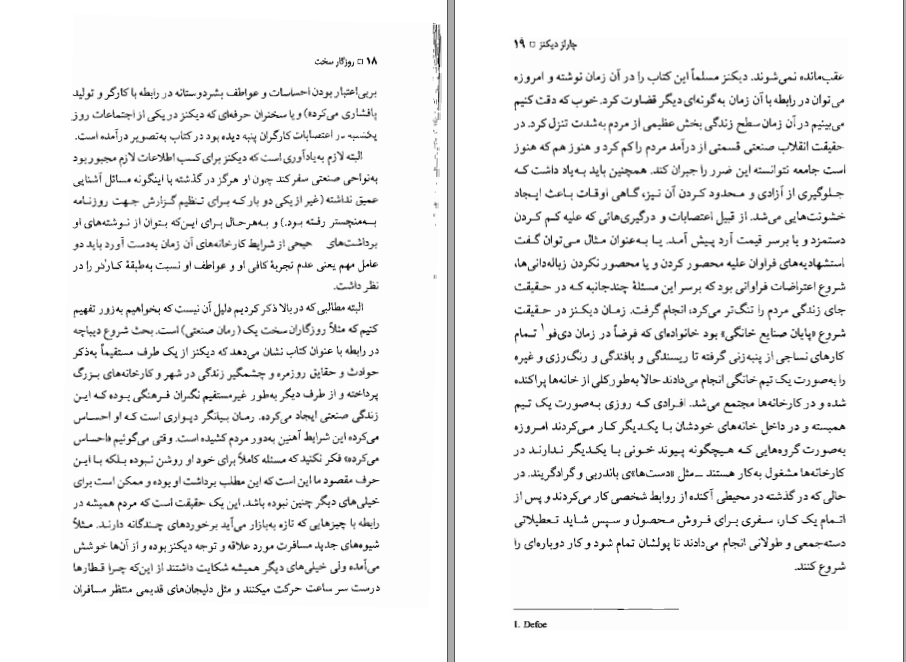 ۱۸ □ روزگار سخت
بر بی‌اعتبار بودن احساسات و عواطف بشردوستانه در رابطه با کارگر و تولید
پافشاری می‌کرد) و یا سخنران حرفه‌ای که دیکنز در یکی از اجتماعات روز
یکشنبه در اعتصابات کارگران پنبه دیده بود در کتاب به‌تصویر درآمده است.
البته لازم به‌یادآوری است که دیکنز برای کسب اطلاعات لازم مجبور بود
به‌نواحی صنعتی سفر کند چون او هرگز در گذشته با اینگونه مسائل آشنایی
عمیق نداشته (غیر از یکی دو بار که برای تنظیم گزارش جهت روزنامه
به‌منچستر رفته بود.) و به‌هرحال برای این‌که بتوان از نوشته‌های او
برداشت‌های حیحی از شرایط کارخانه‌های آن زمان به‌دست آورد باید دو
عامل مهم یعنی عدم تجربهٔ کافی او و عواطف او نسبت به‌طبقهٔ کارگر را در
نظر داشت.
البته مطالبی که در بالا ذکر کردیم دلیل آن نیست که بخواهیم به‌زور تفهیم
کنیم که مثلاً روزگاران سخت یک (رمان صنعتی) است. بحث شروع دیباچه
در رابطه با عنوان کتاب نشان می‌دهد که دیکنز از یک طرف مستقیماً به‌ذکر
حوادث و حقایق روزمره و چشمگیر زندگی در شهر و کارخانه‌های بزرگ
پرداخته و از طرف دیگر به‌طور غیرمستقیم نگران فرهنگی بوده که این
زندگی صنعتی ایجاد می‌کرده. رمان بیانگر دیواری است که او احساس
می‌کرده این شرایط آهنین به‌دور مردم کشیده است. وقتی می‌گوئیم «احساس
می‌کرده» فکر نکنید که مسئله کاملاً برای خود او روشن نبوده بلکه با این
حرف مقصود ما این است که این مطلب برداشت او بوده و ممکن است برای
خیلی‌های دیگر چنین نبوده باشد. این یک حقیقت است که مردم همیشه در
رابطه با چیزهایی که تازه به‌بازار می‌آید برخوردهای چندگانه دارند. مثلاً
شیوه‌های جدید مسافرت مورد علاقه و توجه دیکنز بوده و از آن‌ها خوشش
می‌آمده ولی خیلی‌های دیگر همیشه شکایت داشتند از این‌که چرا قطارها
درست سر ساعت حرکت میکنند و مثل دلیجان‌های قدیمی منتظر مسافران
چارلز دیکنز □ ۱۹
عقب‌مانده نمی‌شوند. دیکنز مسلماً این کتاب را در آن زمان نوشته و امروزه
می‌توان در رابطه با آن زمان به‌گونه‌ای دیگر قضاوت کرد. خوب که دقت کنیم
می‌بینیم در آن زمان سطح زندگی بخش عظیمی از مردم به‌شدت تنزل کرد. در
حقیقت انقلاب صنعتی قسمتی از درآمد مردم را کم کرد و هنوز هم که هنوز
است جامعه نتوانسته این ضرر را جبران کند. همچنین باید به‌یاد داشت که
جلوگیری از آزادی و محدود کردن آن نیز، گاهی اوقات باعث ایجاد
خشونت‌هایی می‌شد. از قبیل اعتصابات و درگیری‌هائی که علیه کم کردن
دستمزد و یا برسر قیمت آرد پیش آمد. یا به‌عنوان مثال می‌توان گفت
استشهادیه‌های فراوان علیه محصور کردن و یا محصور نکردن زباله‌دانی‌ها،
شروع اعتراضات فراوانی بود که برسر این مسئلهٔ چندجانبه که در حقیقت
جای زندگی مردم را تنگ‌تر می‌کرد، انجام گرفت. زمان دیکنز در حقیقت
شروع «پایان صنایع خانگی» بود خانواده‌ای که فرضاً در زمان دی‌فو۱ تمام
کارهای نساجی از پنبه‌زنی گرفته تا ریسندگی و بافندگی و رنگ‌رزی و غیره
را به‌صورت یک تیم خانگی انجام می‌دادند حالا به‌طورکلی از خانه‌ها پراکنده
شده و در کارخانه‌ها مجتمع می‌شد. افرادی که روزی به‌صورت یک تیم
همبسته و در داخل خانه‌های خودشان با یکدیگر کار می‌کردند امروزه
به‌صورت گروه‌هایی که هیچگونه پیوند خونی با یکدیگر ندارند در
کارخانه‌ها مشغول به‌کار هستند ــ مثل «دست‌ها»ی باندربی و گرادگریند. در
حالی که در گذشته در محیطی آکنده از روابط شخصی کار می‌کردند و پس از
اتمام یک کار، سفری برای فروش محصول و سپس شاید تعطیلاتی
دسته‌جمعی و طولانی انجام می‌دادند تا پولشان تمام شود و کار دوباره‌ای را
شروع کنند.
1. Defoe